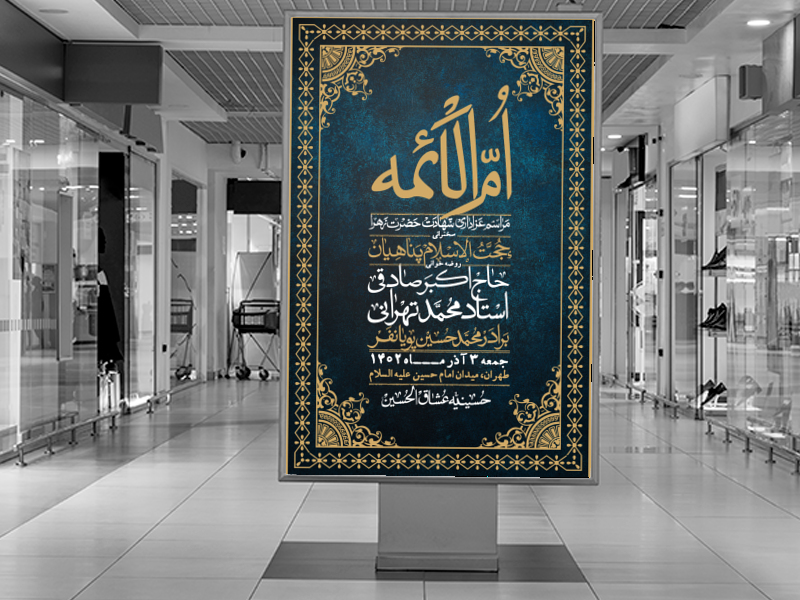 اُمّ الأئمه
مراسم عزاداری شهادت حضرت زهرا
سخنرانی
حجت الاسلام پناهیان
روضه خوانی
حاج اکبر صادقی
استاد محمد تهرانی
برادر محمد حسین پویانفر
جمعه ۳ آذر مــاه ۱۴۰۲
طهران، میدان امام حسین علیه السلام
حسینیه عشاق الحسین